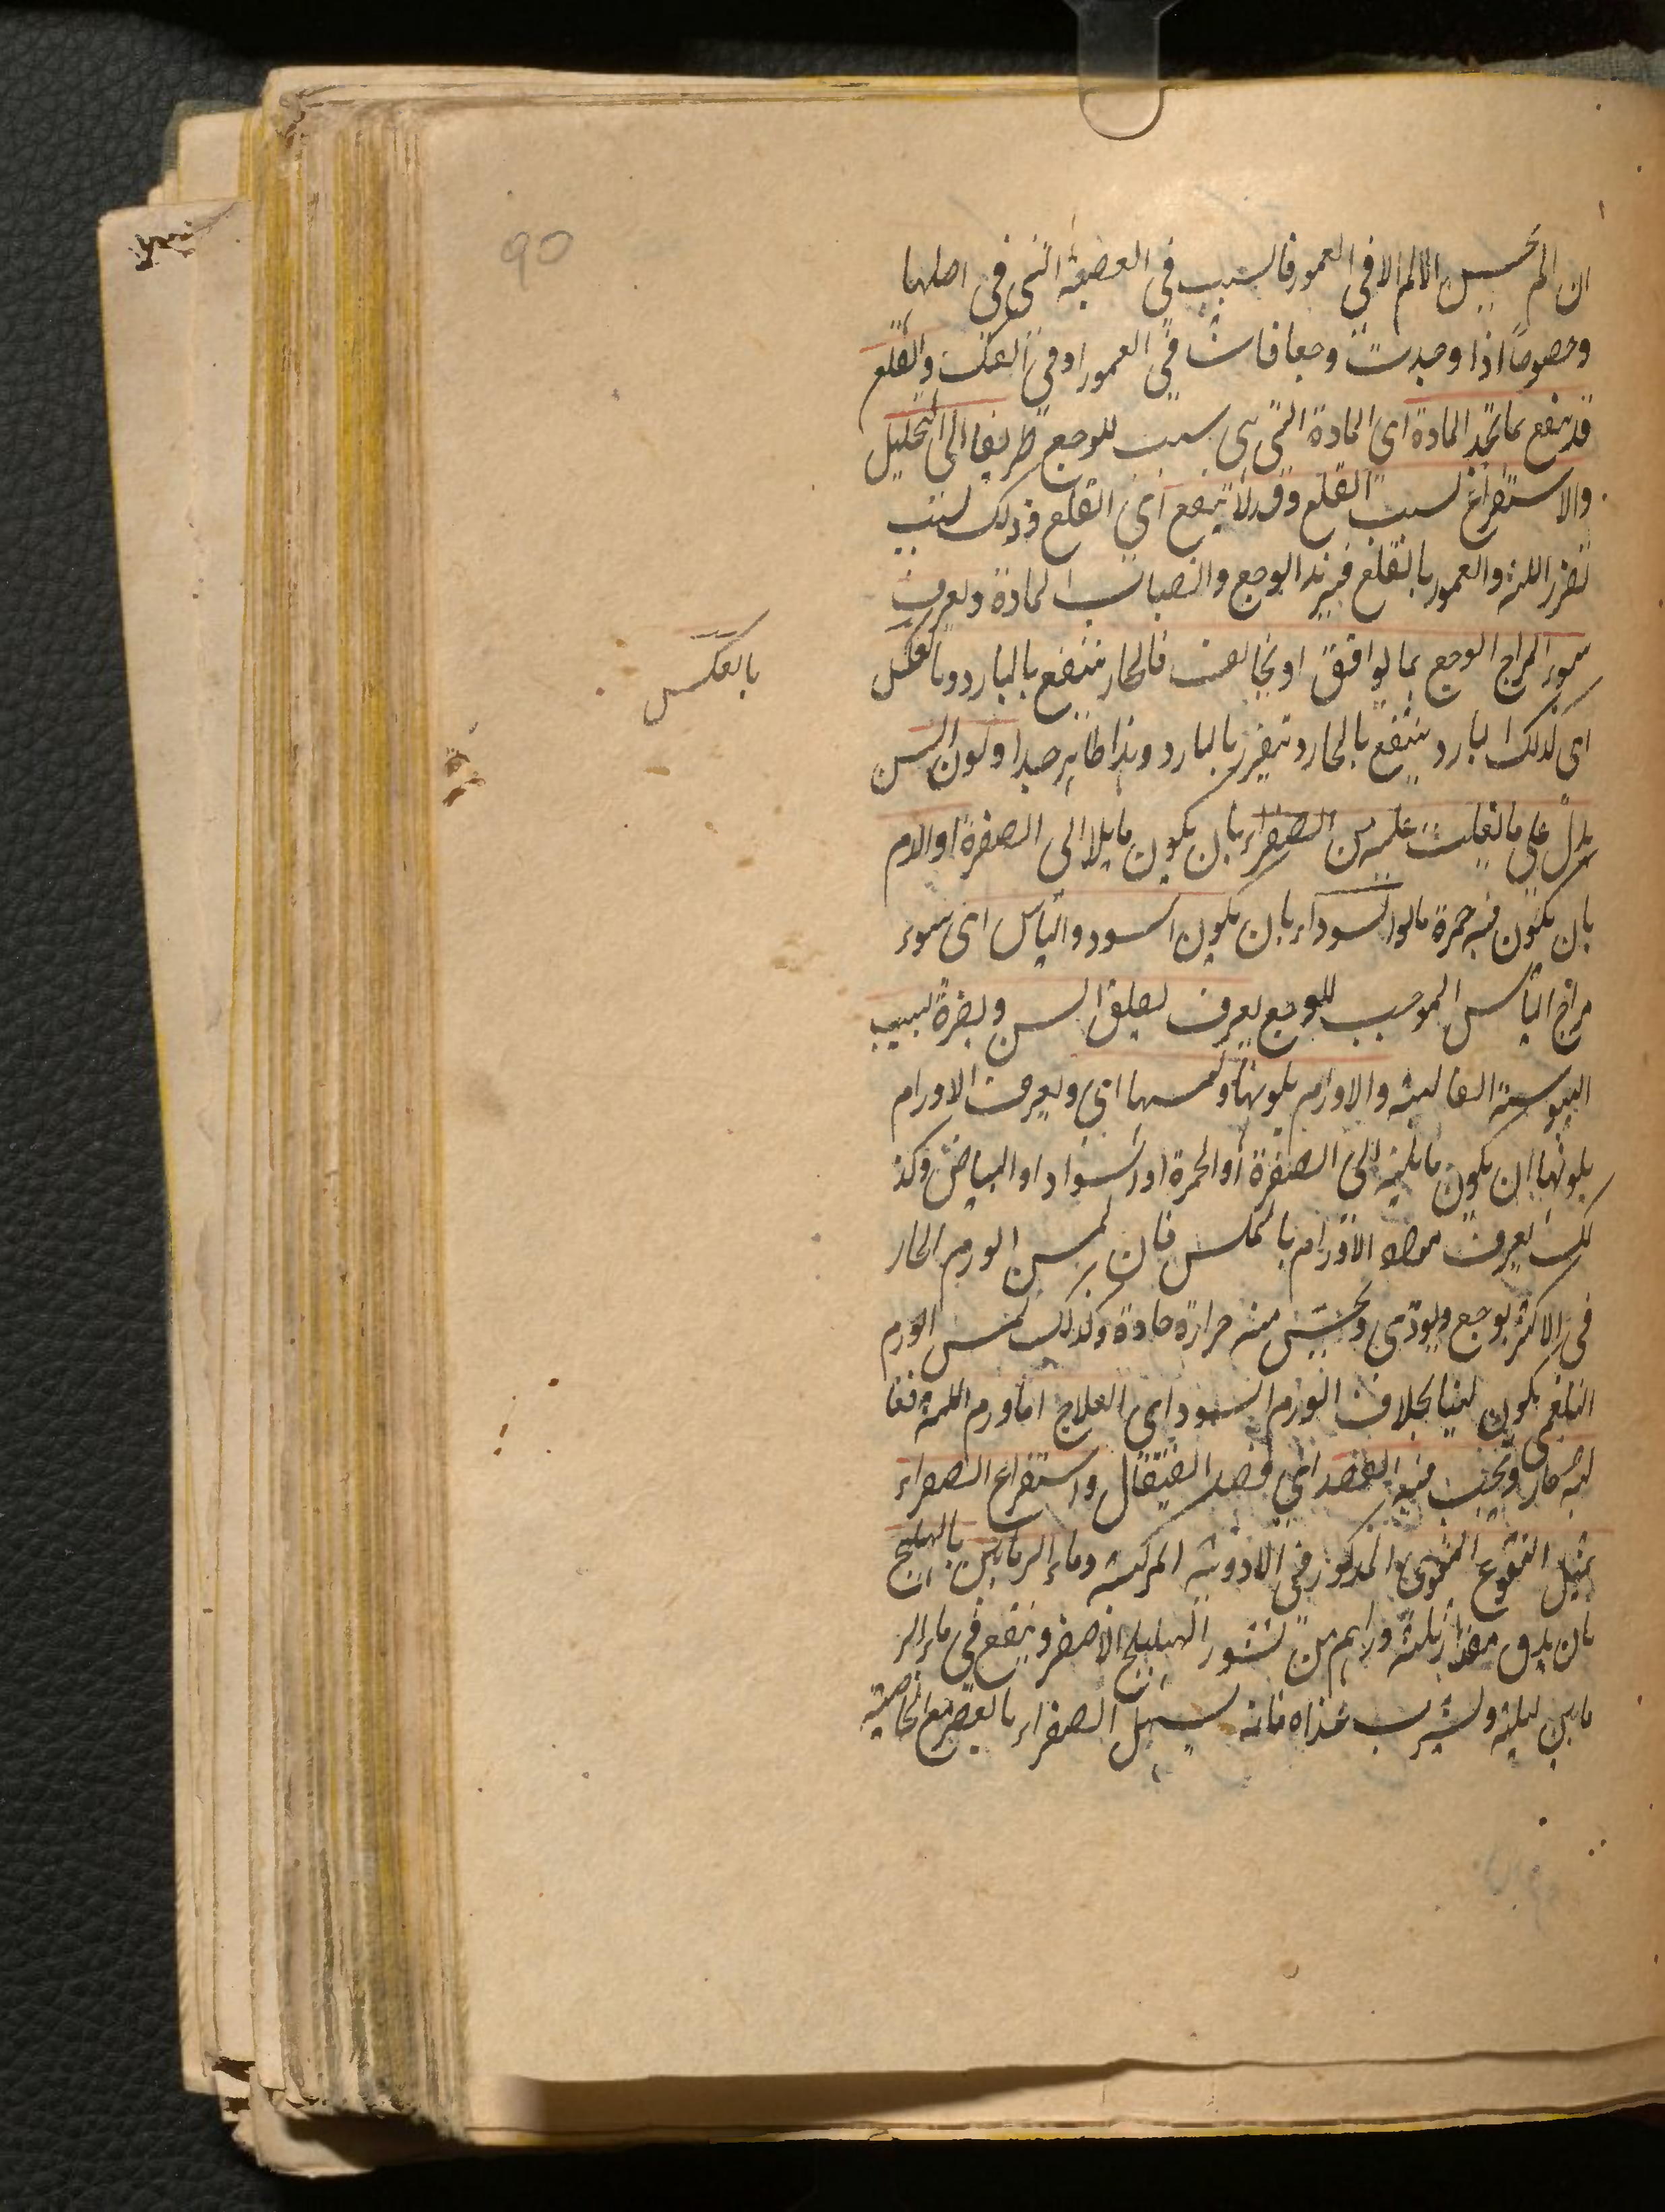 90
ان لم يحس الالم الا في العمور فالسبب في العصبة التي في اصلها
وخصوصا اذا وجدت وجعا فاشيا في العمور او في الفك والقلع
قد ينفع بما تجد المادة اي المادة التي هي سبب للوجع طريقا الى التحليل
والاستفراغ بسبب القلع وقد لا ينفع اي القلع وذلك بسبب
تضرر اللثة والعمور بالقلع فيزيد الوجع وانصباب المادة ويعرف
سوء المزاج الوجع بما يوافق او يخالف فالحار ينتفع بالبارد وبالعكس
بالعكس
اي كذلك البارد ينتفع بالحار ويتضرر بالبارد وهذا ظاهر جدا ولون السن
يدل على ما تغلب عليه من الصفراء بان يكون مايلا الى الصفرة او الدم
بان يكون فيه حمرة ما والسوداء بان يكون اسود واليابس اي سوء
مزاج اليابس الموجب للوجع يعرف بقلق السن وبضمره بسبب
اليبوسة الغالبة والاورام بلونها ولمسها اي ويعرف الاورام
بلونها ان يكون مايلة الى الصفرة او الحمرة او السواد او البياض وكذ
لك يعرف مواد الاورام باللمس فان لمس الورم الحار
في الاكثر يوجع ويوذي ويحس منه حرارة حادة وكذلك لمس الورم
البلغمي يكون لينا بخلاف الورم السوداوي العلاج اما ورم اللثة فغا
لبه حار ويجب فيه الفصد اي فصد القيفال واستفراغ الصفراء
بمثل النقوع المقوي المذكور في الادوية المركبة وماء الرمانين بالهليلج
بان يدق مقدار ثلثة دراهم من قشور الهليلج الاصفر وينقع في ماء الر
مانين ليلة ويشرب غداه فانه يسهل الصفراء بالعصر مع الخاصية